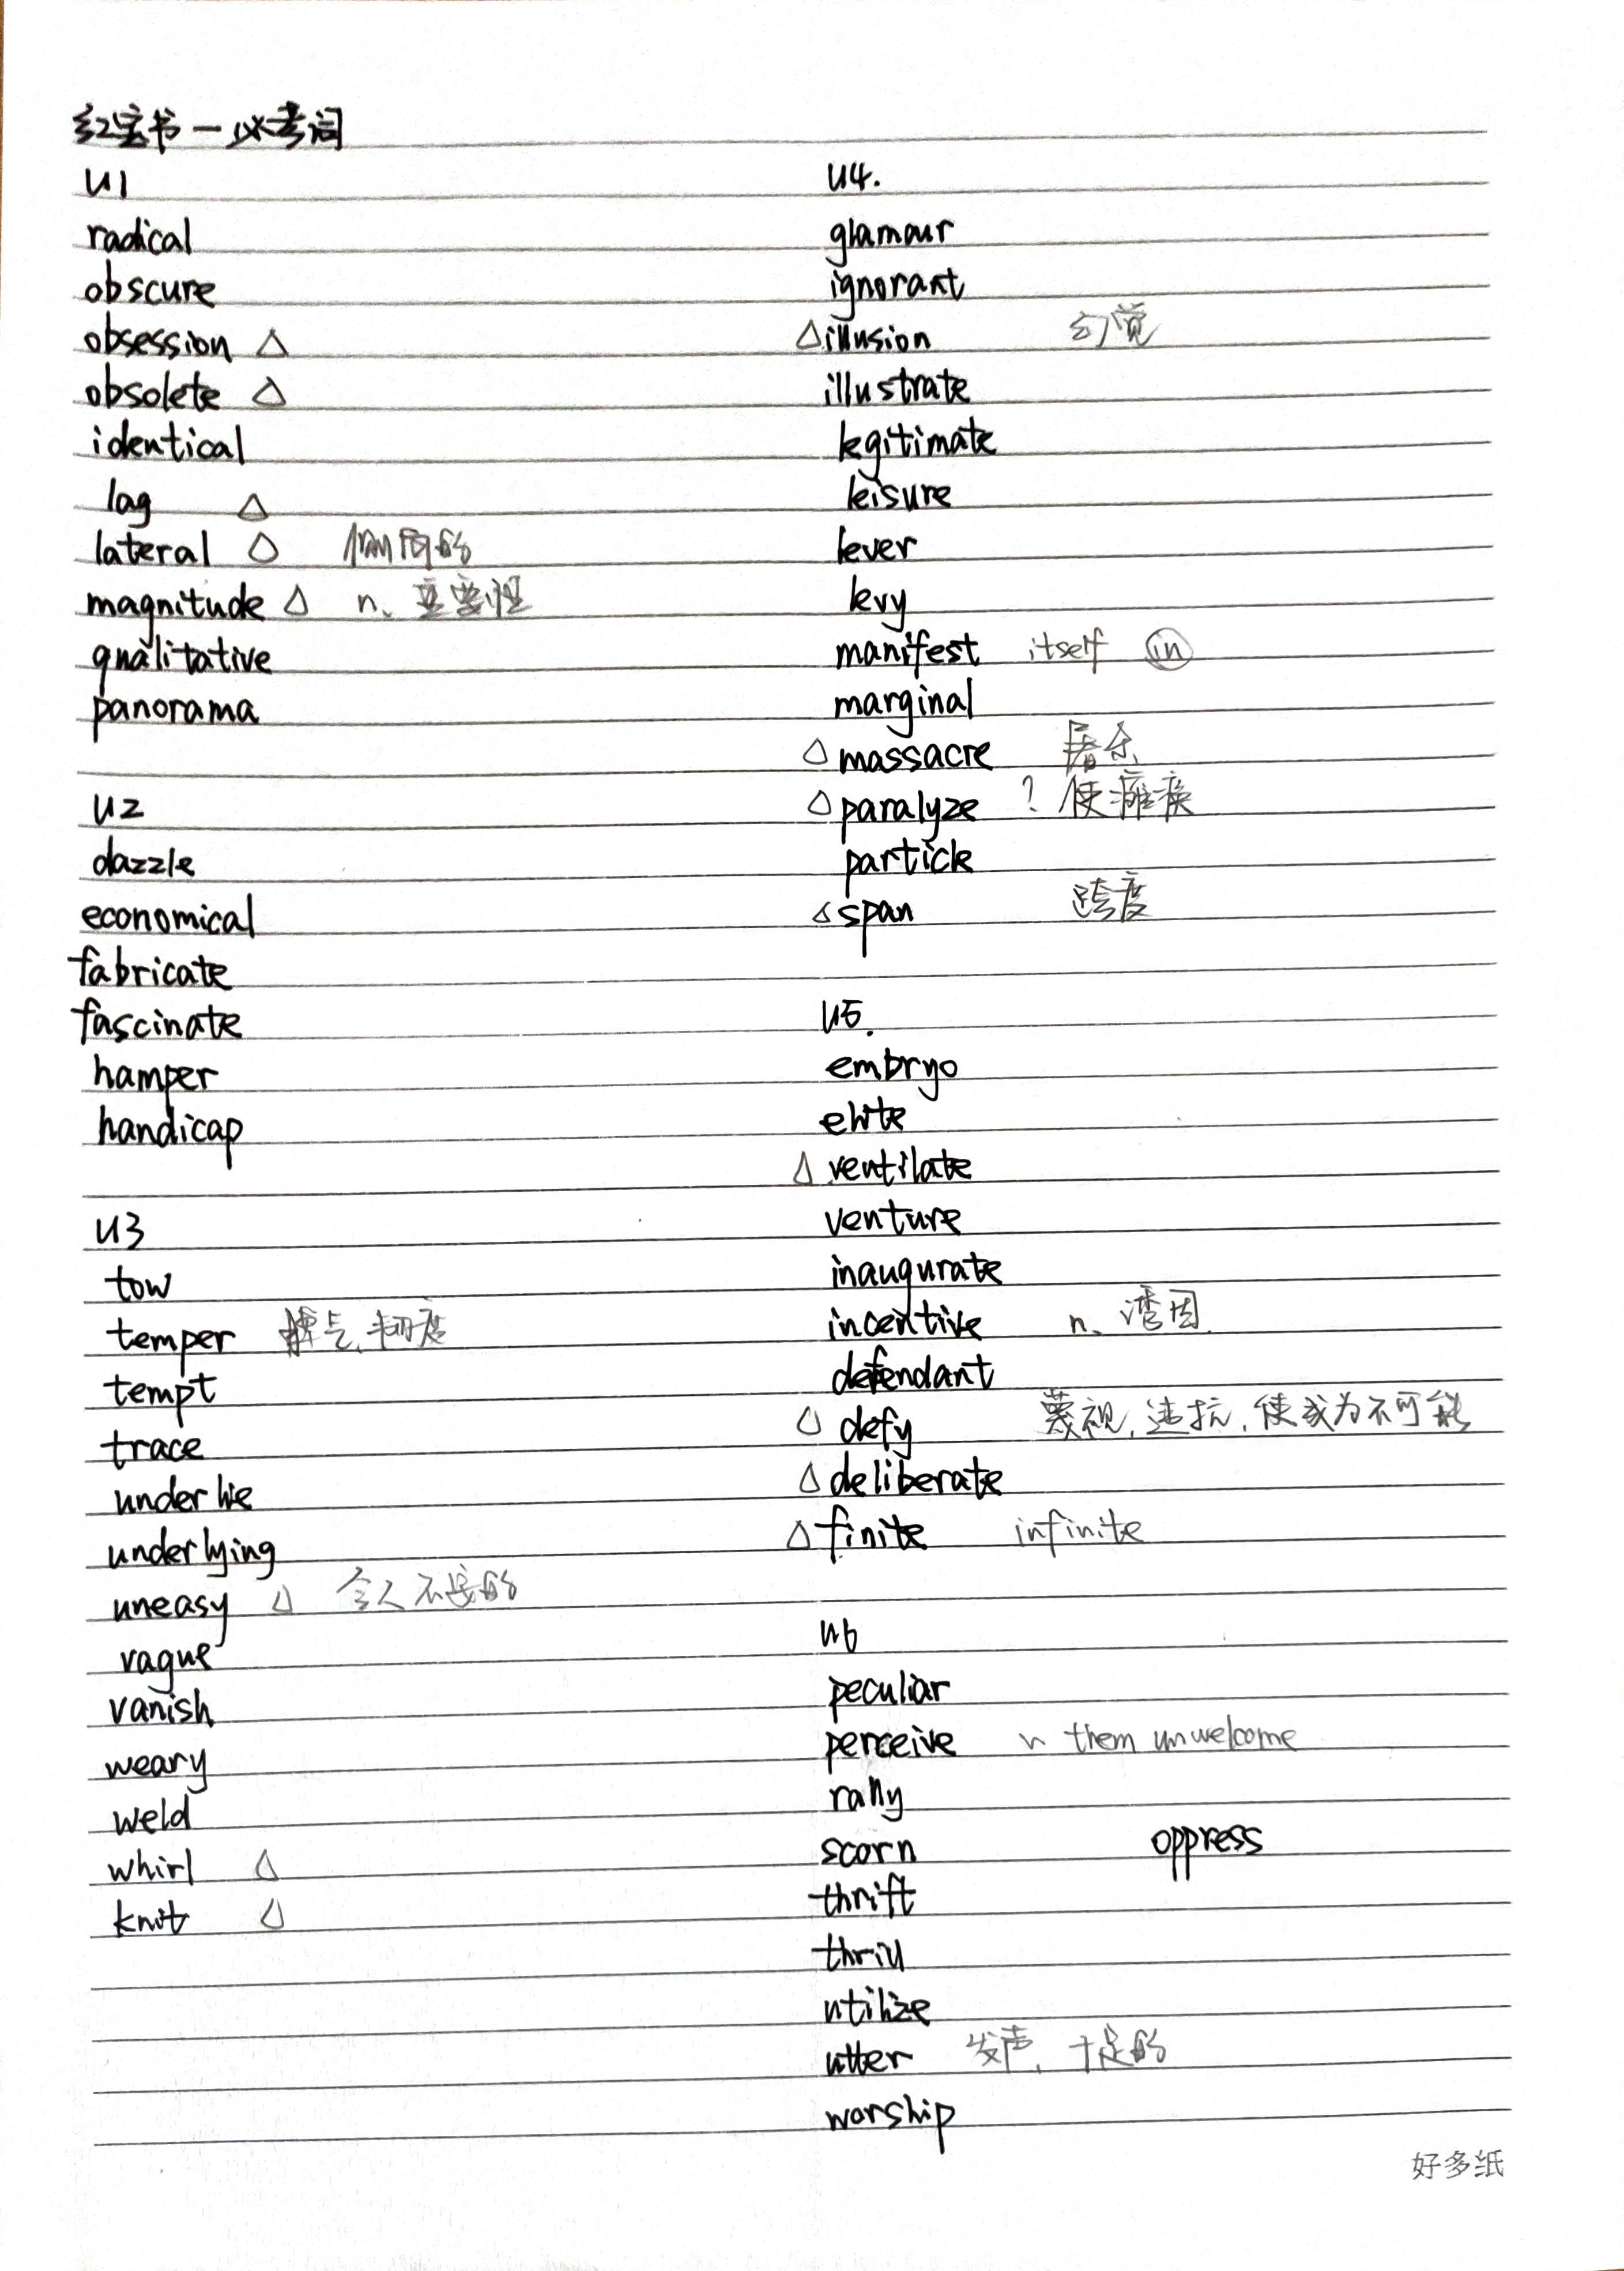 红宝书一必考词
U1
radical
obscure
obsession △
obsolete △
identical
lag △
lateral △ 侧向的
magnitude △ n、重要性
qualitative
panorama
U2
dazzle
economical
fabricate
fascinate
hamper
handicap
U3
tow
temper 脾气、韧度
tempt
trace
underlie
underlying
uneasy △ 令人不安的
vague
vanish
weary
weld
whirl △
knit △
U4.
glamour
ignorant
△ illusion 幻觉
illustrate
legitimate
leisure
lever
levy
manifest itself in
marginal
△ massacre 屠杀
△ paralyze ? 使瘫痪
particle
△ span 跨度
U5.
embryo
elite
△ ventilate
venture
inaugurate
incentive n、
defendant
△ defy 蔑视,违抗,使成为不可能
△ deliberate
△ finite infinite
U6
peculiar
perceive ~ them unwelcome
rally
scorn oppress
thrift
thrill
utilize
utter 发声、十足的
worship
好多纸